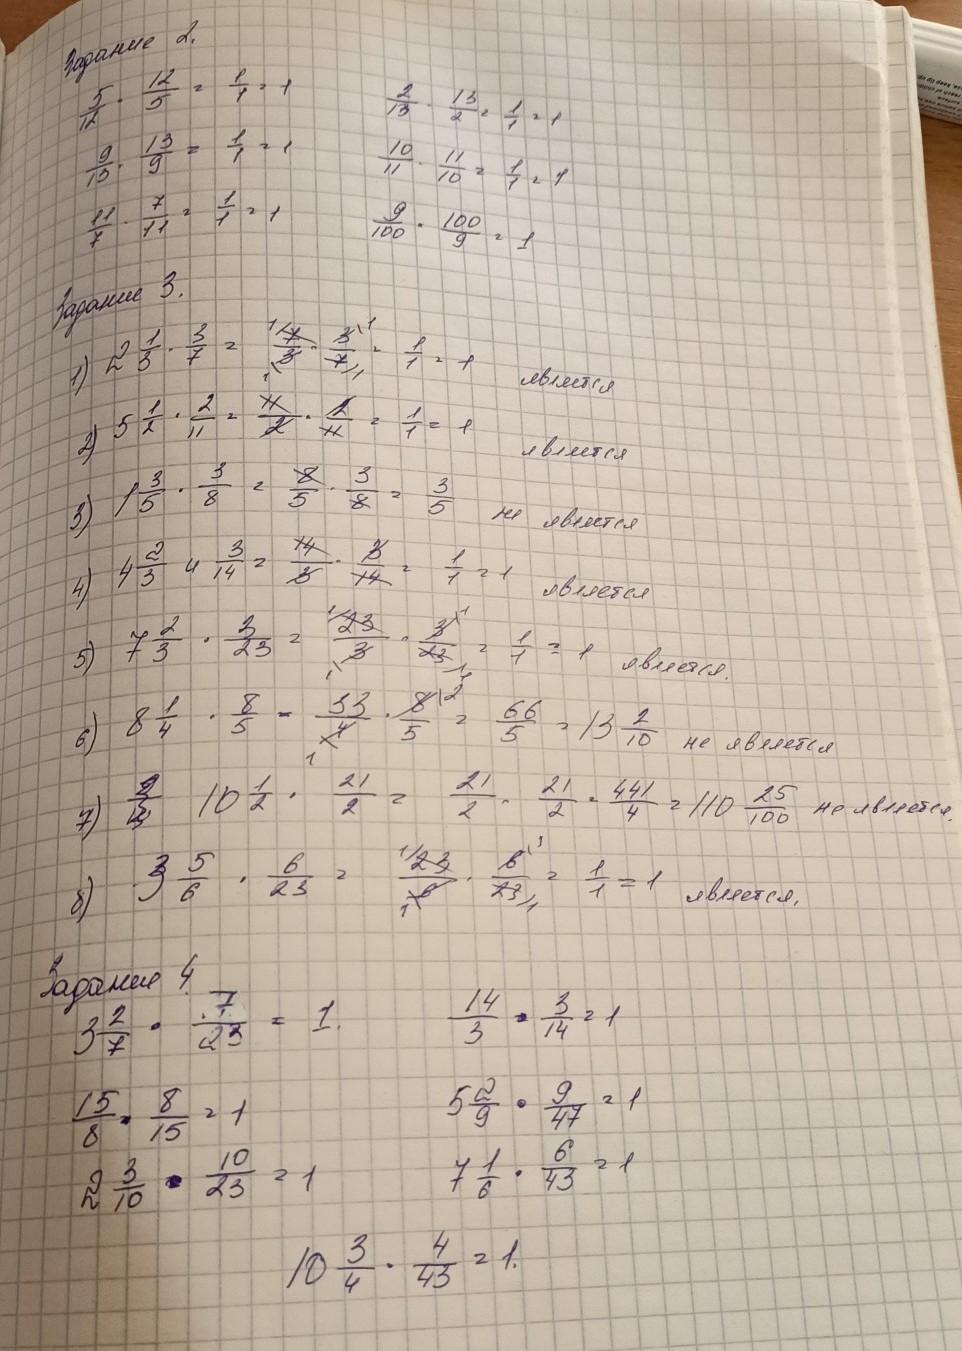 Задание 2.
5/12 · 12/5 = 1/1 = 1    2/13 · 13/2 = 1/1 = 1
9/13 · 13/9 = 1/1 = 1    10/11 · 11/10 = 1/1 = 1
11/7 · 7/11 = 1/1 = 1    9/100 · 100/9 = 1
Задание 3.
1) 2 1/3 · 3/7 = 7/3 · 3/7 = 1/1 = 1 является
2) 5 1/2 · 2/11 = 11/2 · 2/11 = 1/1 = 1 является
3) 1 3/5 · 3/8 = 8/5 · 3/8 = 3/5 не является
4) 4 2/3 и 3/14 = 14/3 · 3/14 = 1/1 = 1 является
5) 7 2/3 · 3/23 = 23/3 · 3/23 = 1/1 = 1 является.
6) 8 1/4 · 8/5 = 33/4 · 8/5 = 66/5 = 13 2/10 не является
7) 10 1/2 · 21/2 = 21/2 · 21/2 = 441/4 = 110 25/100 не является.
8) 3 5/6 · 6/23 = 23/6 · 6/23 = 1/1 = 1 является.
Задание 4
3 2/7 · 7/23 = 1.    14/3 · 3/14 = 1
15/8 · 8/15 = 1    5 2/9 · 9/47 = 1
2 3/10 · 10/23 = 1    7 1/6 · 6/43 = 1
10 3/4 · 4/43 = 1.